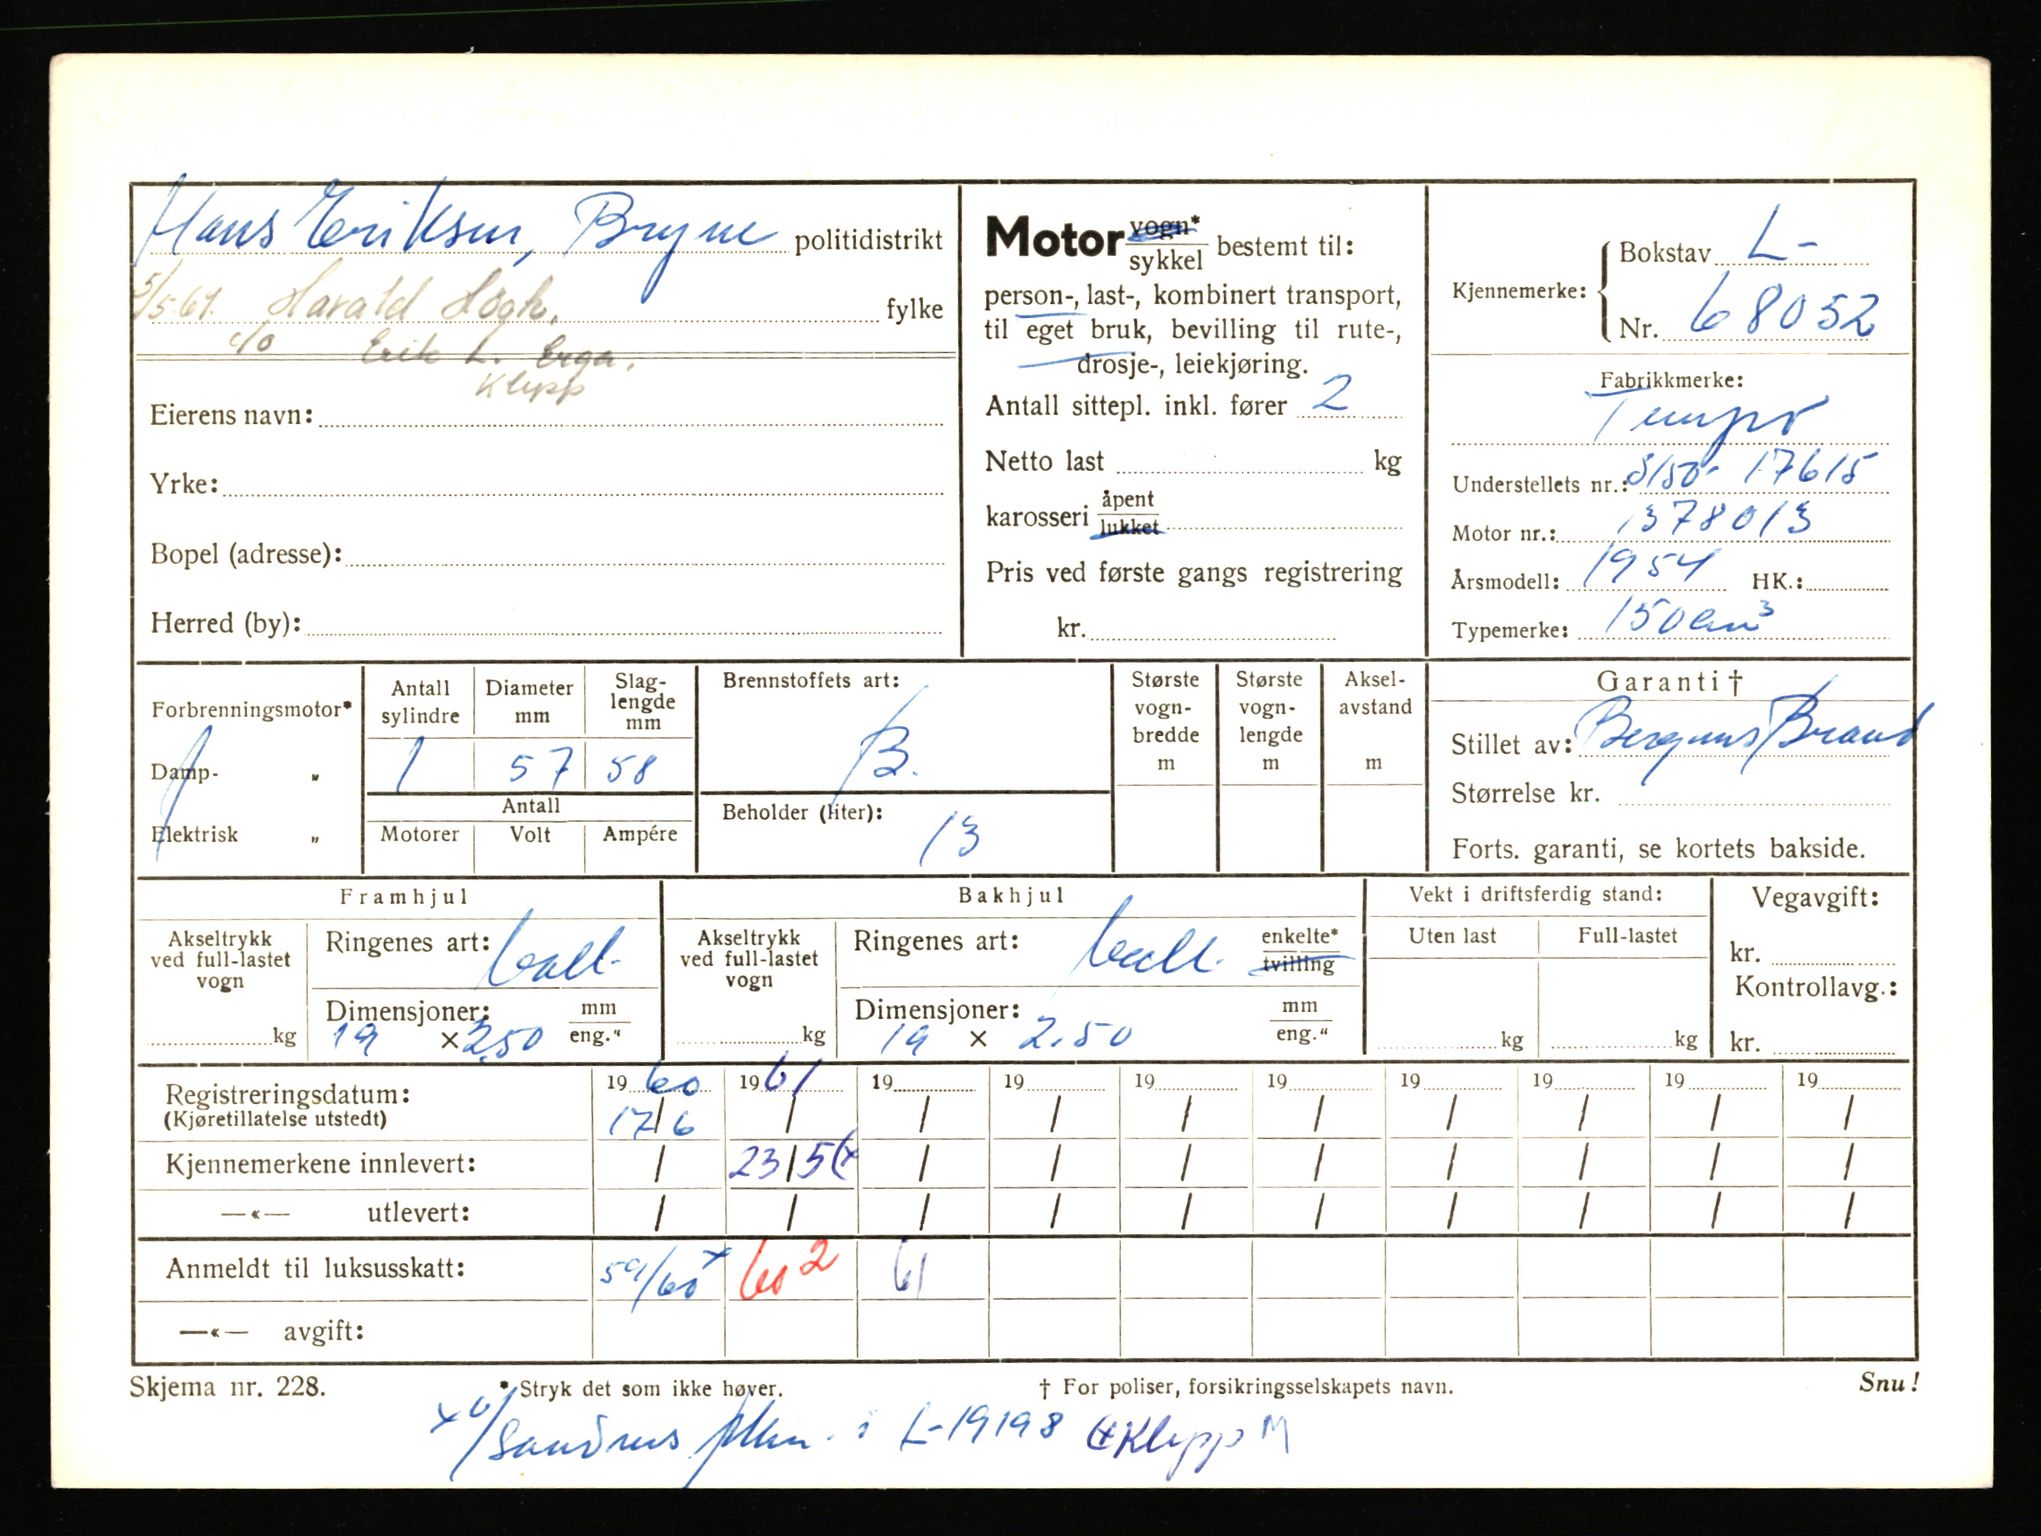 Hans Eriksen, Bryne politidistrikt
5/5-61. Harald Högh. fylke
c/o Erik L. Erga.
Klepp
Eierens navn:
Yrke:
Bopel (adresse):
Herred (by):
Motor vogn* sykkel bestemt til:
person-, last-, kombinert transport,
til eget bruk, bevilling til rute-,
drosje-, leiekjøring.
Antall sittepl. inkl. fører 2
Netto last kg
karosseri åpent lukket
Pris ved første gangs registrering
kr.
Kjennemerke: Bokstav L-
Nr. 68052
Fabrikkmerke:
Tempo
Understellets nr.: S/150- 17615
Motor nr.: 1378013
Årsmodell: 1954 HK.:
Typemerke: 150 cm³
Forbrenningsmotor*
Damp- „
Elektrisk „
Antall sylindre 1
Diameter mm 57
Slaglengde mm 58
Antall
Motorer Volt Ampére
Brennstoffets art:
B.
Beholder (liter):
13
Største vogn-bredde m
Største vogn-lengde m
Aksel-avstand m
Garanti †
Stillet av: Bergens Brand
Størrelse kr.
Forts. garanti, se kortets bakside.
Framhjul
Akseltrykk ved full-lastet vogn
kg
Ringenes art: ball.
Dimensjoner: mm
19 × 2.50 eng."
Bakhjul
Akseltrykk ved full-lastet vogn
kg
Ringenes art: ball. enkelte* tvilling
Dimensjoner: mm
19 × 2.50 eng."
Vekt i driftsferdig stand:
Uten last Full-lastet
kg kg
Vegavgift:
kr.
Kontrollavg.:
kr.
Registreringsdatum: 19 60 19 61 19 19 19 19 19 19 19 19
(Kjøretillatelse utstedt) 17/6 / / / / / / / / /
Kjennemerkene innlevert: / 23/5 (x / / / / / / / /
—«— utlevert: / / / / / / / / / /
Anmeldt til luksusskatt: 59/60 x 60 2 61
—«— avgift:
Skjema nr. 228. * Stryk det som ikke høver. † For poliser, forsikringsselskapets navn. Snu!
i L-19198 (x Klepp M